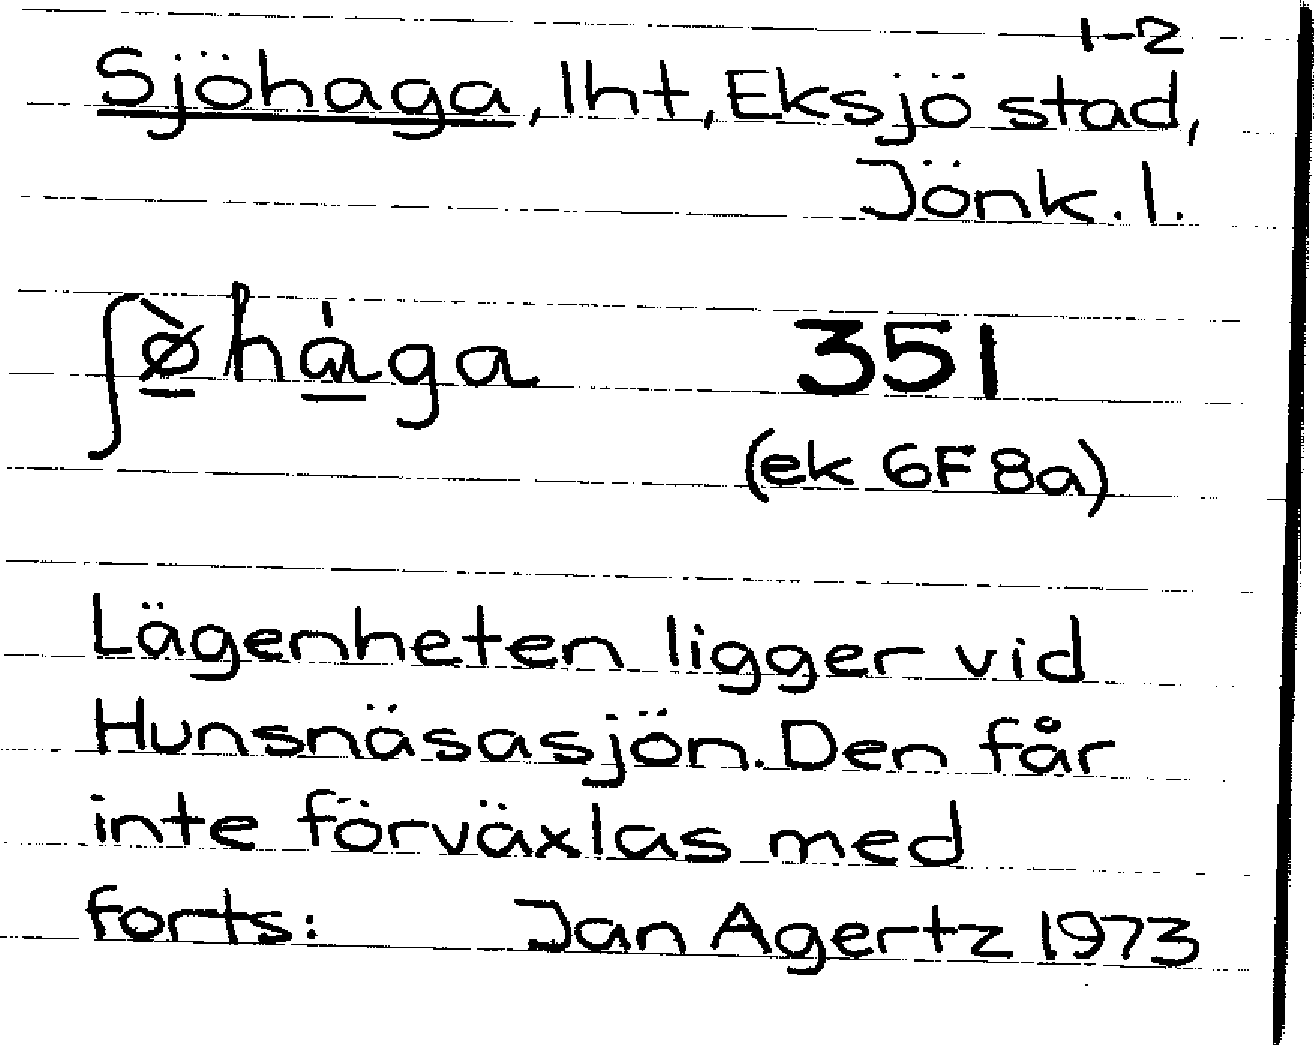 1-2
Sjöhaga, lht, Eksjö stad,
Jönk. l.
ʃø̠̀ha̠̍ga 351
(ek 6F8a)
Lägenheten ligger vid
Hunsnäsasjön. Den får
inte förväxlas med
forts: Jan Agertz 1973